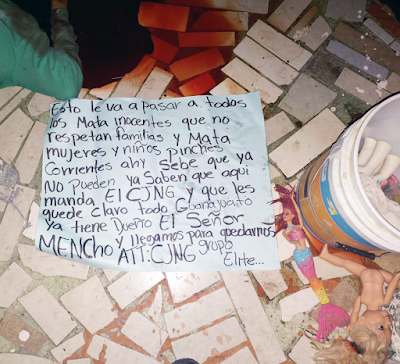 Esto le va a pasar a todos
los Mata inocentes que no
respetan familias y Mata
mujeres y niños pinches
Corrientes ahy Sebe que ya
NO Pueden ya Saben que aqui
manda El CJNG y que les
quede claro todo Guanajuato
ya tiene Dueño El Señor
MENCHO y llegamos para quedarnos
ATT: CJNG grupo
Elite...